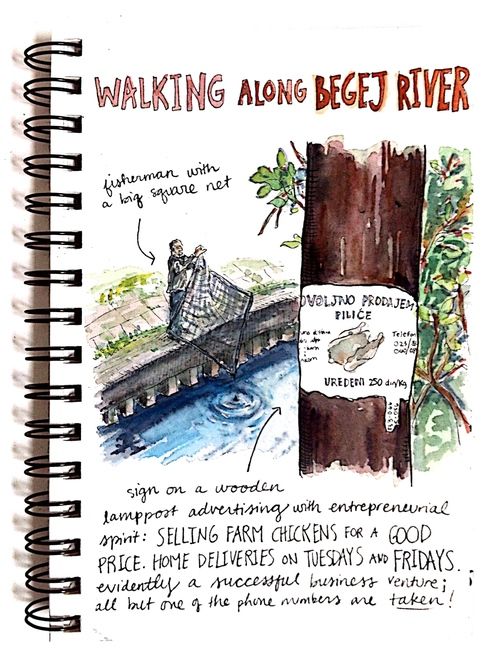 WALKING ALONG BEGEJ RIVER
fisherman with
a big square net
POVOLJNO PRODAJEM
PILIĆE
Telefon
UREĐENI 250 din/kg
sign on a wooden
lamppost advertising with entrepreneurial
spirit: SELLING FARM CHICKENS FOR A GOOD
PRICE. HOME DELIVERIES ON TUESDAYS AND FRIDAYS.
evidently a successful business venture;
all but one of the phone numbers are taken!